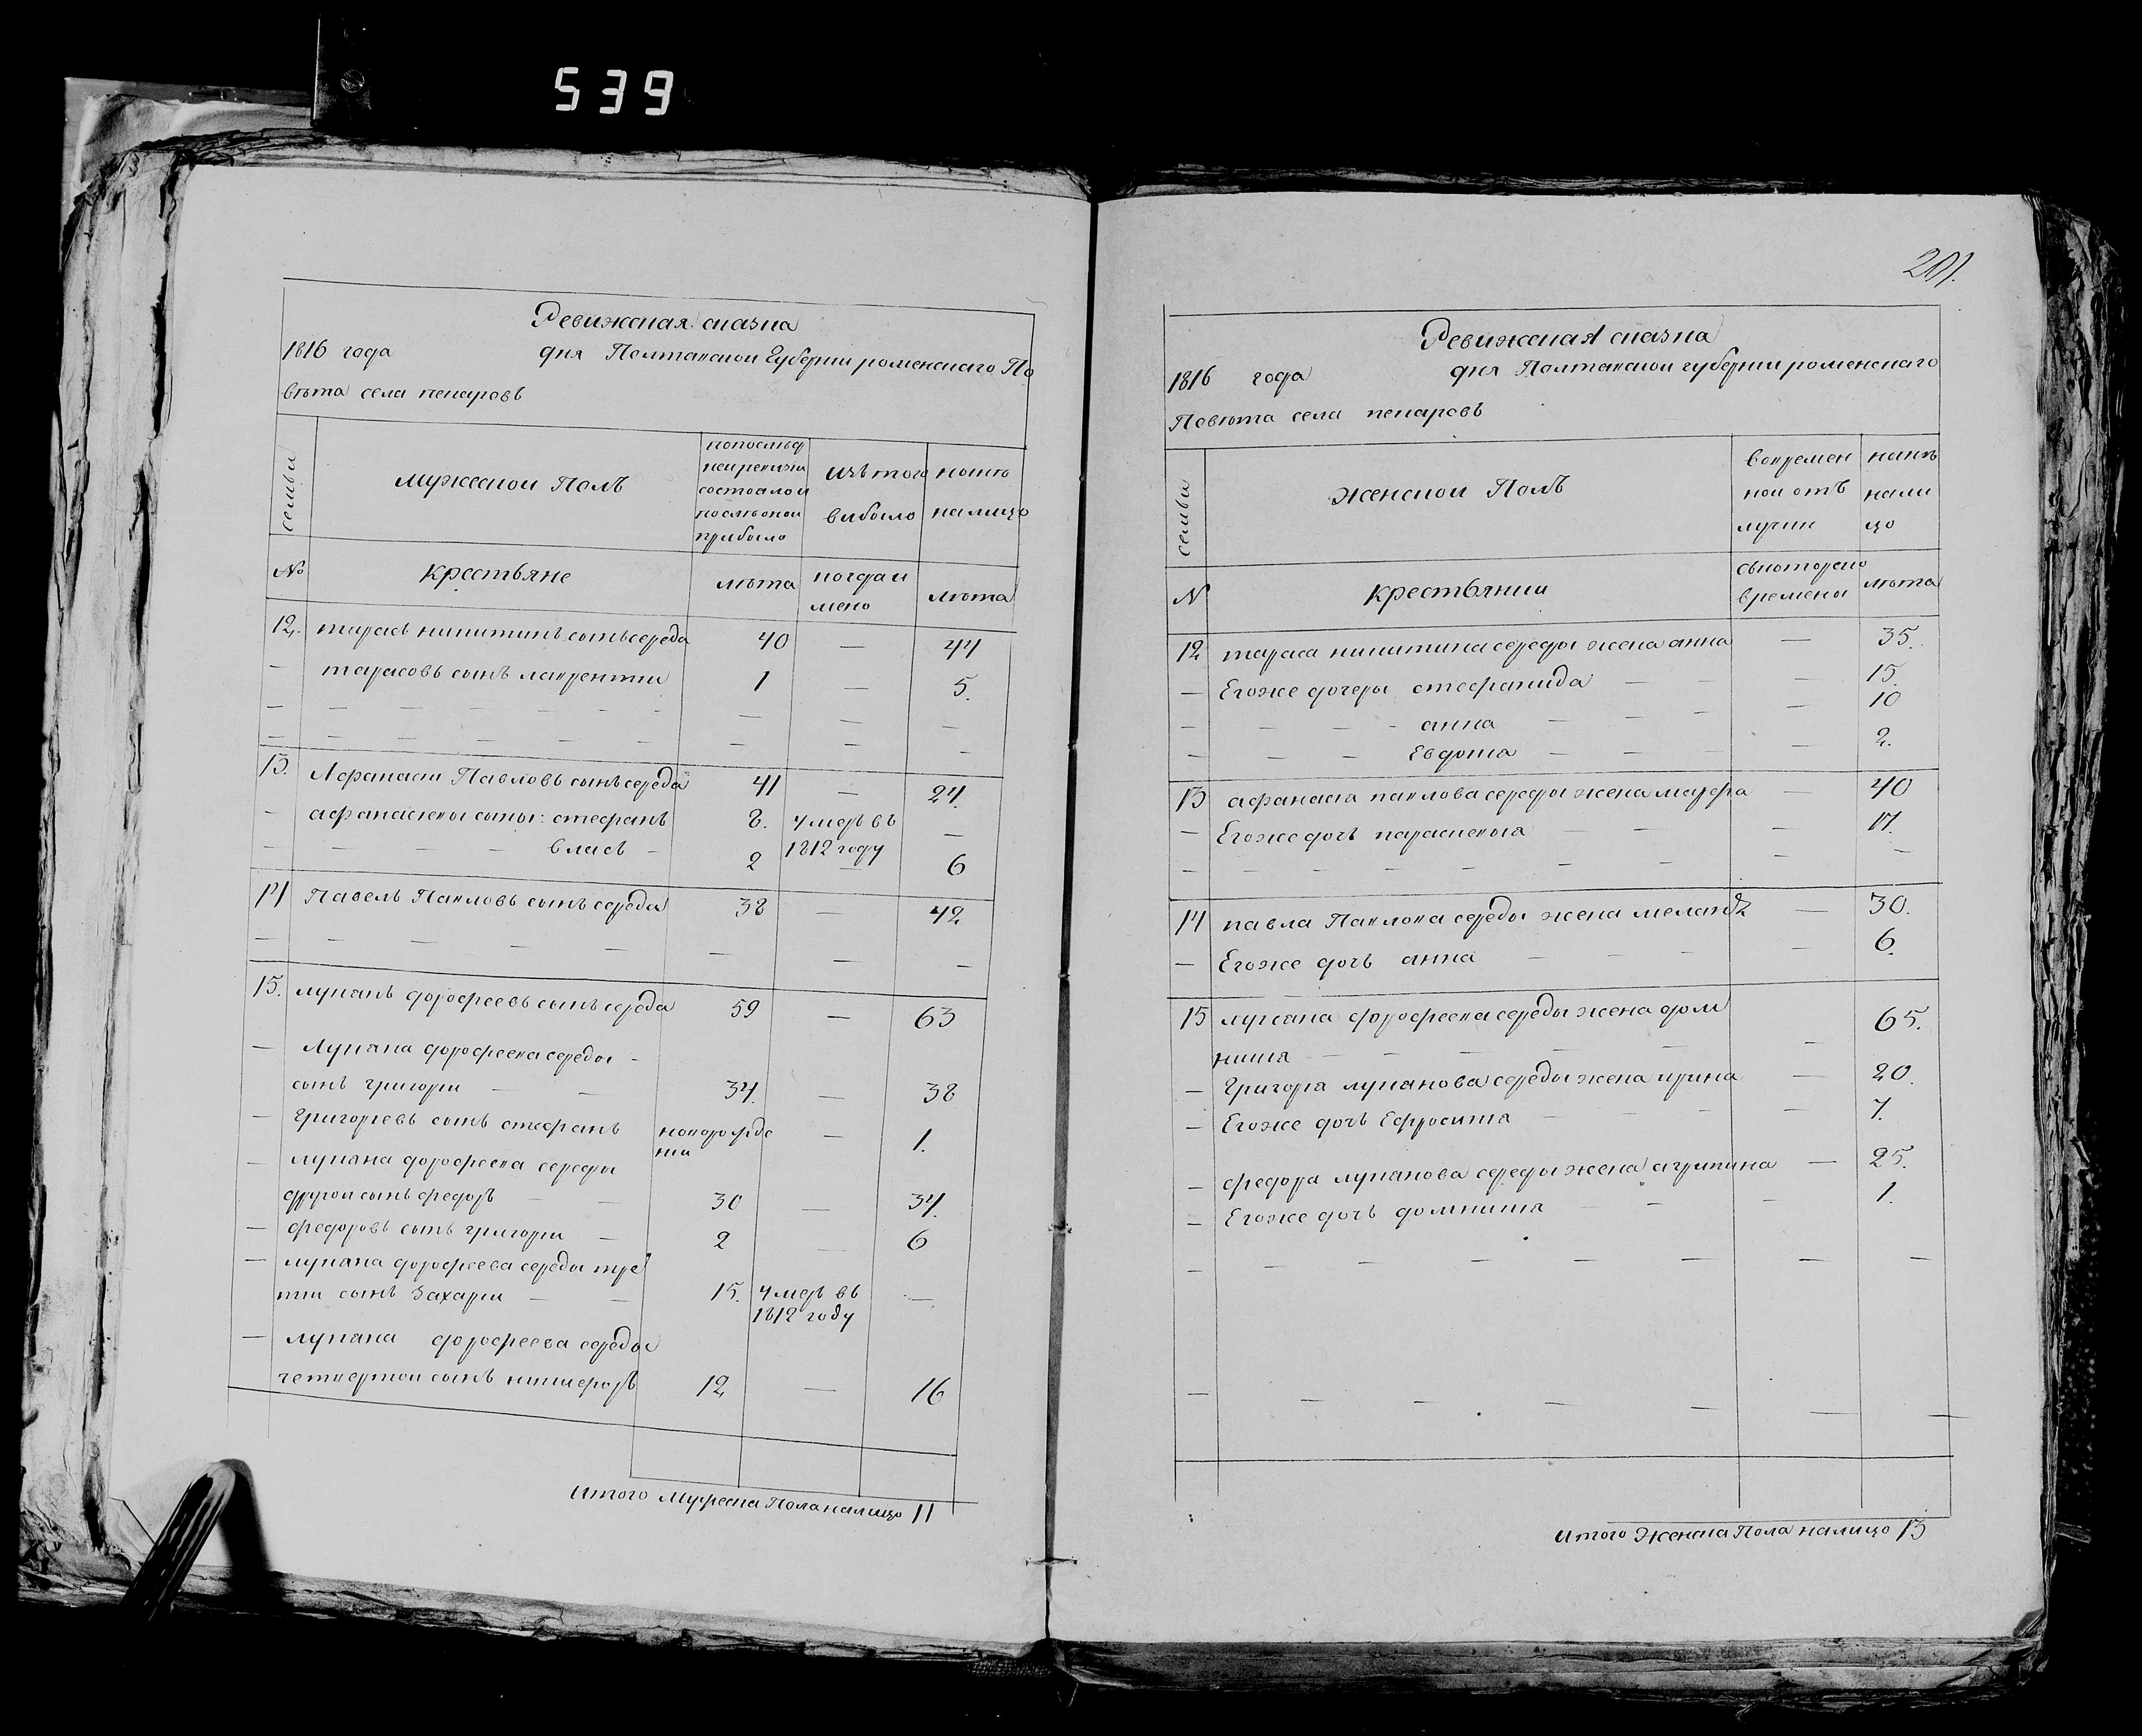 539
Ревижская сказка
1816 года дня Полтавской Губернии роменскаго По
вѣта села пекаровъ
семьи
мужескои Полъ
попослѣд
неи ревизии
состояло и
послѣ онои
прибыло
изъ того
выбыло
нынѣ
налицо
№
крестьяне
лѣта
когда и
мено
лѣта
12. тарасъ никитинъ сынъ середа 40 — 44
— тарасовъ сынъ лаврентии 1 — 5.
13. Афанасии Павловъ сынъ середа 41 — 24.
— афанасиевы сыны: стефанъ 8. умеръ въ —
— власъ — 2 1812 году 6
14 Павелъ Павловъ сынъ середа 38 — 42
15. лукянъ дорофеевъ сынъ середа 59 — 63
— Лукяна дорофеева середы -
сынъ григории 34. — 38
— Григориевъ сынъ стефанъ новорожде — 1.
нии
— лукяна дорофеева середы
другои сынъ федоръ 30 — 34.
— федоровъ сынъ григории — 2 — 6
— лукяна дорофеева середы тре
тии сынъ Захарии 15. умеръ въ —
1812 году
— лукяна дорофеева середы
четвертои сынъ никифоръ 12 — 16
Итого Мужеска Пола налицо 11
201.
Ревижская сказка
1816 года дня Полтавской губернии роменскаго
Повѣта села пекаровъ
семьи
женскои Полъ
вовремен
нои отъ
лучки
нынѣ
нали
цо
N
крестьянки
съкоторого
времены
лѣта
12 тараса никитина середы жена анна — 35.
— Егоже дочеры стефанида — 15.
— анна — 10
— Евдокиа — 2.
13 афанасия павлова середы жена марфа — 40
— Егоже дочь параскевия — 17.
14 павла Павлова середы жена меланя — 30.
— Егоже дочь анна — 6.
15 лукяна дорофеева середы жена дом
никия — 65.
— Григория лукянова середы жена ирина — 20.
— Егоже дочь Ефросиния — 7.
— федора лукянова середы жена агрипина — 25.
— Егоже дочь домникия — 1.
Итого Женска Пола налицо 13